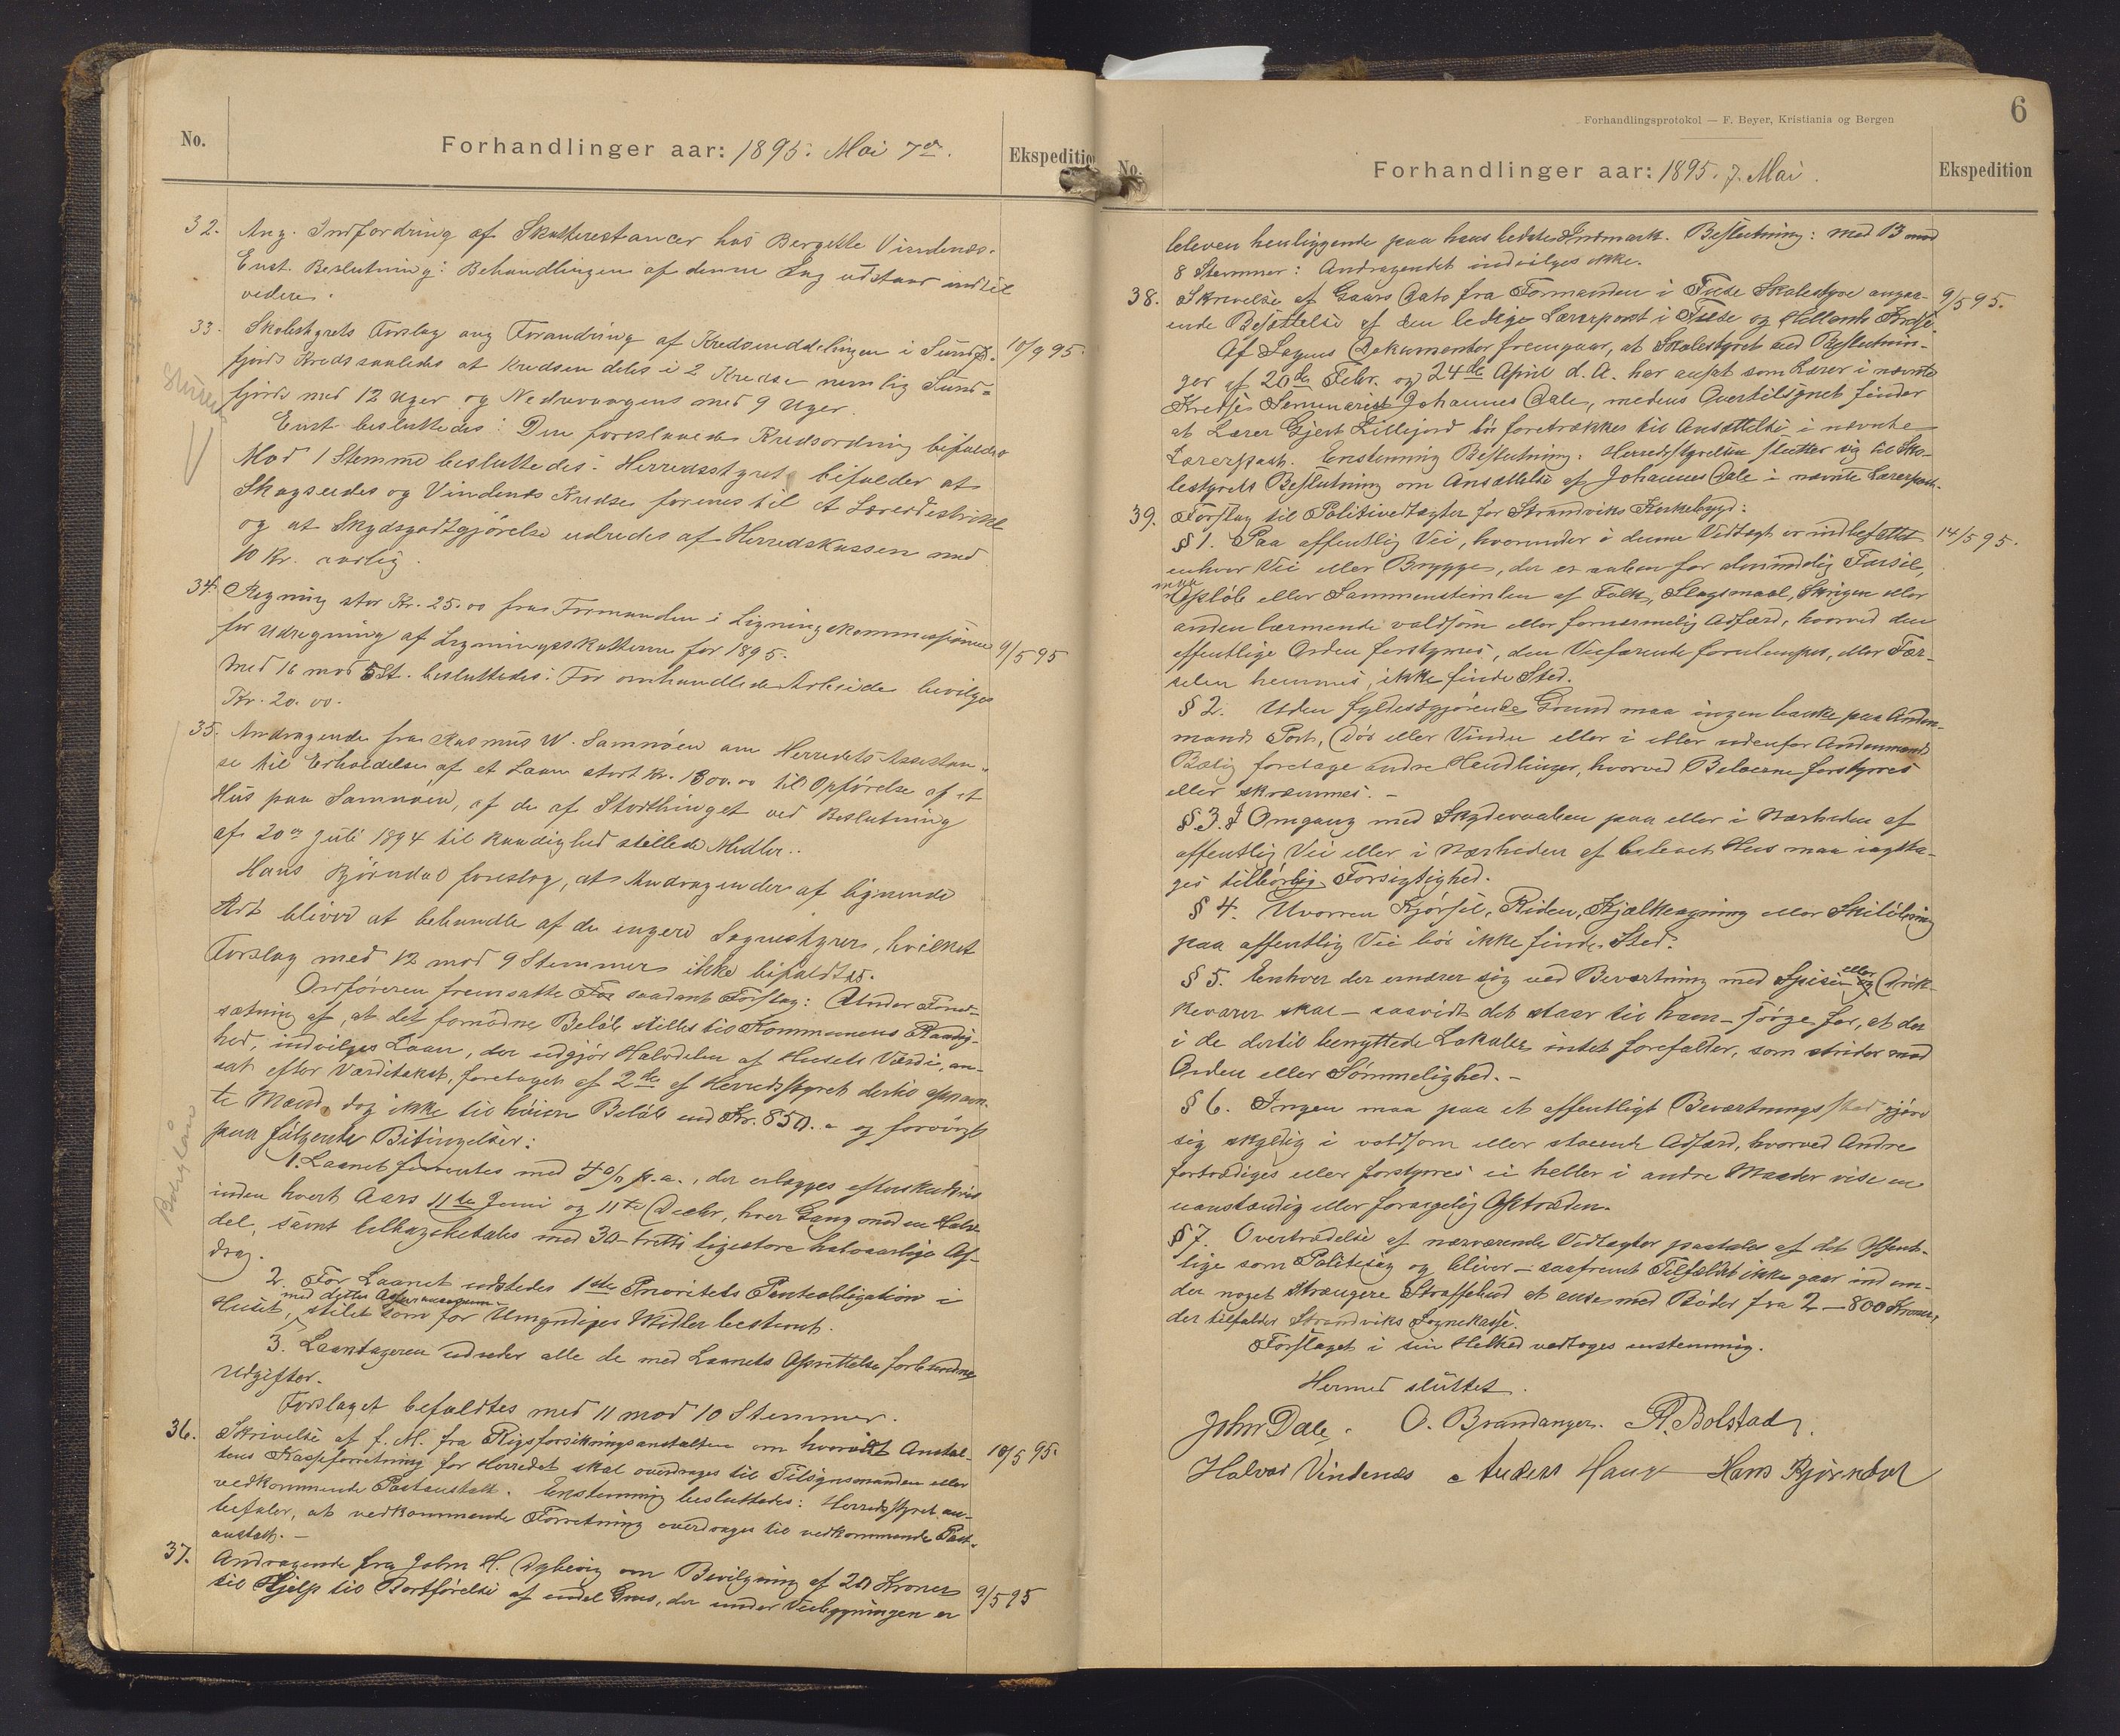 No.
Forhandlinger aar: 1895. Mai 7de.
Ekspedition
32. Ang. Indfordring af Skatterestancer hos Bergitte Vindenæs.
Enst. Beslutning: Behandlingen af denne Sag udstaar indtil
videre.
33. Skolestyrets Forslag ang Forandring af Kredsinddelingen i Sund- 10/9 95.
fjords Kreds saaledes at Kredsen deles i 2 Kredse nemlig Sund-
fjords med 12 Uger og Nedrevaagens med 9 Uger.
Enst. besluttedes: Den foreslaaede Kredsordning bifaldes
Mod 1 Stemme besluttedes: Herredsstyret bifalder at
Skogseides og Vindenæs Kredse forenes til et Lærerdistrikt
og at Skydsgodtgjørelse udredes af Herredskassen med
10 Kr. aarlig.
34. Regning stor Kr. 25.00 fra Formanden i Ligningskommissionen
for Udregning af Ligningsskatterne for 1895. 9/5 95
Med 16 mod 5 St. besluttedes: For omhandlede Arbeide bevilges
Kr. 20.00.
35. Andragende fra Rasmus W. Samnøen om Herredets Assistan-
se til Erholdelse af et Laan stort Kr. 1300.00 til Opførelse af et
Hus paa Samnøen, af de af Storthinget ved Beslutning
af 20de Juli 1894 til Raadighed stillede Midler.
Hans Bjørndal foreslog, at Andragender af lignende
Art bliver at behandle af de engere Sognestyrer, hvilket
Forslag med 12 mod 9 Stemmer ikke bifaldtes.
Ordføreren fremsatte For saadant Forslag: Under Forud-
sætning af, at det fornødne Beløb stilles til Kommunens Raadig-
hed, indvilges Laan, der udgjør Halvdelen af Husets Værdi, an-
sat efter Værditakst, foretaget af 2de af Herredsstyret dertil opnævn-
te Mænd, dog ikke til høiere Beløb end Kr. 850.- og forøvrigt
paa følgende Betingelser:
1. Laanet forrentes med 4 % p.a., der erlægges efterskudsvis
inden hvert Aars 11te Juni og 11te Decbr, hver Gang med en Halv-
del, samt tilbagebetales med 30 - tretti ligestore halvaarlige Af-
drag.
2. For Laanet udstedes 1ste Prioritets Panteobligation i
med dettes Assurancesum
Huset, stilet som for Umyndiges Midler bestemt.
3. Laantageren udreder alle de med Laanets Oprettelse forbundne
Udgifter.
Forslaget bifaldtes med 11 mod 10 Stemmer.
36. Skrivelse af f. M. fra Rigsforsikringsanstalten om hvorvidt Anstal- 10/5 95.
tens Kasseforretning for Herredet skal overdrages til Tilsynsmanden eller
vedkommende Postanstalt. Enstemmig besluttedes: Herredsstyret an-
befaler, at vedkommende Forretning overdrages til vedkommende Post-
anstalt. -
37. Andragende fra John H. Dybevig om Bevilgning af 20 Kroner 9/5 95
til Hjelp til Bortførelse af endel Grus, der under Veibygningen er
6
Forhandlingsprotokol — F. Beyer, Kristiania og Bergen
No.
Forhandlinger aar: 1895. 7. Mai.
Ekspedition
bleven henliggende paa hans bedste Indmark. Beslutning: med 13 mod
8 Stemmer: Andragendet indvilges ikke.
38. Skrivelse af Gaars Dato fra Formanden i Fuse Skolestyre angaa- 9/5 95.
ende Besættelse af den ledige Lærerpost i Fuse og Hellands Kredse.
Af Sagens Dokumenter fremgaar, at Skolestyret ved Beslutnin-
ger af 20de Febr. og 24de April d. A. har ansat som Lærer i nævnte
Kredse Seminarist Johannes Dale, medens Overtilsynet finder
at Lærer Gjert Lillefjord bør foretrækkes til Ansættelse i nævnte
Lærerpost. Enstemmig Beslutning: Herredsstyrelsen slutter sig til Sko-
lestyrets Beslutning om Ansættelse af Johannes Dale i nævnte Lærerpost.
39. Forslag til Politivedtægter for Strandviks Kirkebygd:
§ 1. Paa offentlig Vei, hvorunder i denne Vedtægt er indbefattet 14/5 95.
enhver Vei eller Brygge, der er aaben for almindelig Færsel,
maa
Opløb eller Sammenstimlen af Folk, Slagsmaal, Skrigen eller
anden larmende voldsom eller fornærmelig Adfærd, hvorved den
offentlige Orden forstyrres, den Veifarende forulempes, eller Fær-
selen hemmes, ikke finde Sted.
§ 2. Uden fyldestgjørende Grund maa ingen banke paa Anden-
mands Port, Dør eller Vindue eller i eller udenfor Andenmands
Bolig foretage andre Handlinger, hvorved Beboerne forstyrres
eller skræmmes. -
§ 3. I Omgang med Skydevaaben paa eller i Nærheden af
offentlig Vei eller i Nærheden af beboet Hus maa iagtta-
ges tilbørlig Forsigtighed.
§ 4. Uvorren Kjørsel, Riden, Kjælkeagning eller Skiløbning
paa offentlig Vei bør ikke finde Sted.
§ 5. Enhver der ernærer sig ved Beværtning med Spise- og eller Drik-
kevarer skal - saavidt det staar til ham - sørge for, at der
i de dertil benyttede Lokaler intet forefalder, som strider mod
Orden eller Sømmelighed. -
§ 6. Ingen maa paa et offentligt Beværtningssted gjøre
sig skyldig i voldsom eller støiende Adfærd, hvorved Andre
fortrædiges eller forstyrres ei heller i andre Maader vise en
uanstændig eller forargelig Optræden.
§ 7. Overtrædelse af nærværende Vedtægter paatales af det Offent-
lige som Politisag og bliver - saafremt Tilfældet ikke gaar ind un-
der noget strængere Straffebud at anse med Bøder fra 2 - 800 Kroner,
der tilfalder Strandviks Sognekasse.
Forslaget i sin Helhed vedtoges enstemmig.
Hermed sluttet.
John Dale. O. Brandanger. R. Bolstad.
Halvar Vindenæs Anders Hauge Hans Bjørndal